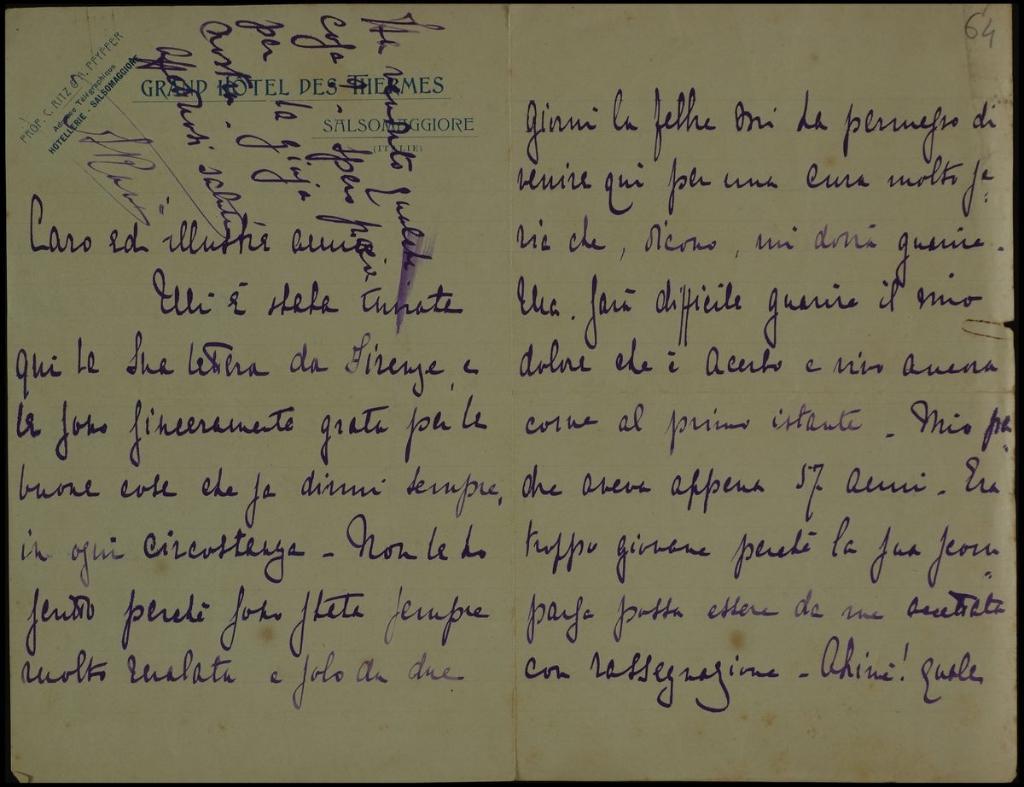 64
PROP. C. RITZ & A. PFYFFER
Adresse Télégraphique
HOTELLERIE - SALSOMAGGIORE
GRAND HOTEL DES THERMES
SALSOMAGGIORE
(ITALIE)
Ha venduto qualche
cosa - spero
per la gioja
nostra -
Affettuosi saluti
Caro ed illustre amico
Mi è stata inviata
qui la Sua lettera da Firenze, e
le sono sinceramente grata per le
buone cose che sa dirmi sempre,
in ogni circostanza - Non le ho
scritto perchè sono stata sempre
molto malata e solo da due
giorni la febbre mi ha permesso di
venire qui per una cura molto se=
ria che, dicono, mi dovrà guarire -
Ma sarà difficile guarire il mio
dolore che è acerbo e vivo ancora
come al primo istante - Mio pa=
dre aveva appena 57 anni - Era
troppo giovane perchè la sua scom=
parsa possa essere da me accettata
con rassegnazione - Ahimè! quale